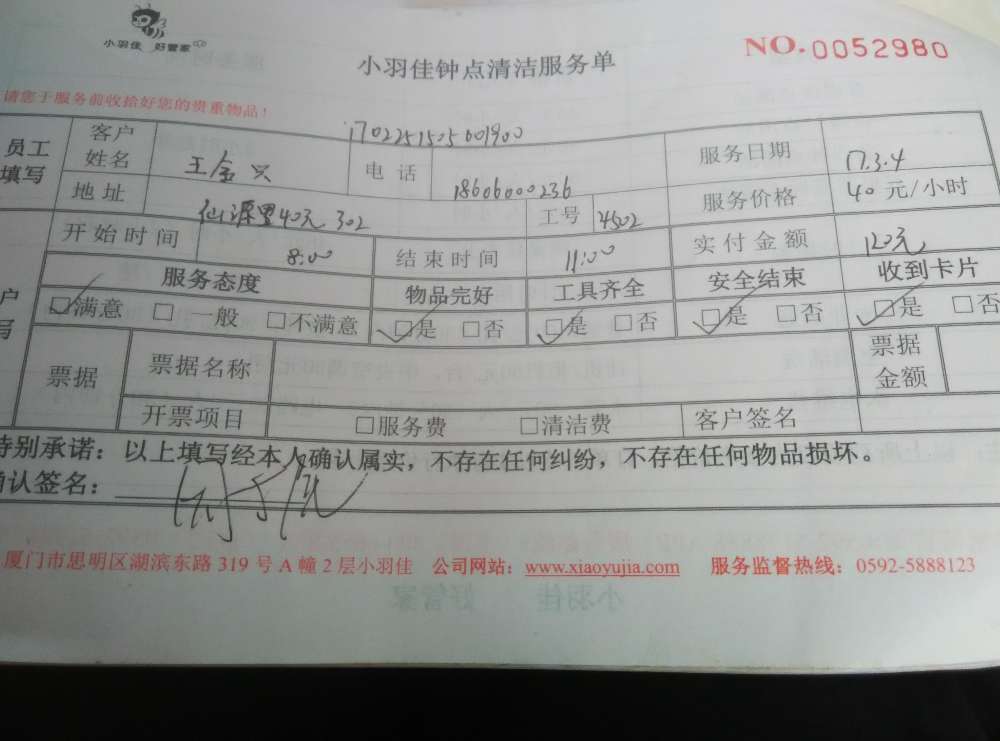 小羽佳 好管家
小羽佳钟点清洁服务单
NO.0052980
请您于服务前收拾好您的贵重物品!
1702251505001900
员工填写 客户姓名 王金兴 电话 18606000236 服务日期 17.3.4
地址 仙源里40元 302 工号 4502 服务价格 40元/小时
开始时间 8:00 结束时间 11:00 实付金额 120元
户 服务态度 物品完好 工具齐全 安全结束 收到卡片
写 ☑满意 □一般 □不满意 ☑是 □否 ☑是 □否 ☑是 □否 ☑是 □否
票据 票据名称 票据金额
开票项目 □服务费 □清洁费 客户签名
特别承诺:以上填写经本人确认属实,不存在任何纠纷,不存在任何物品损坏。
确认签名:
厦门市思明区湖滨东路 319 号 A 幢 2 层小羽佳 公司网站:www.xiaoyujia.com 服务监督热线:0592-5888123